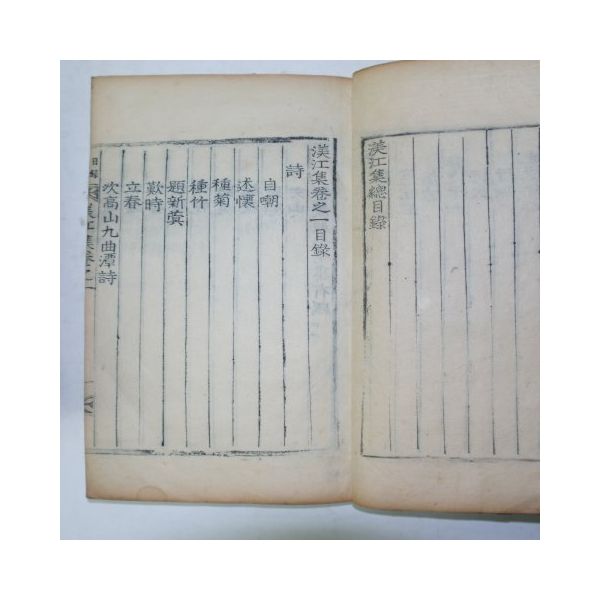 渼江集總目錄
渼江集卷之一目錄
詩
自嘲
述懷
種菊
種竹
題新冀
歎時
立春
次高山九曲潭詩
渼江集卷之一
目錄